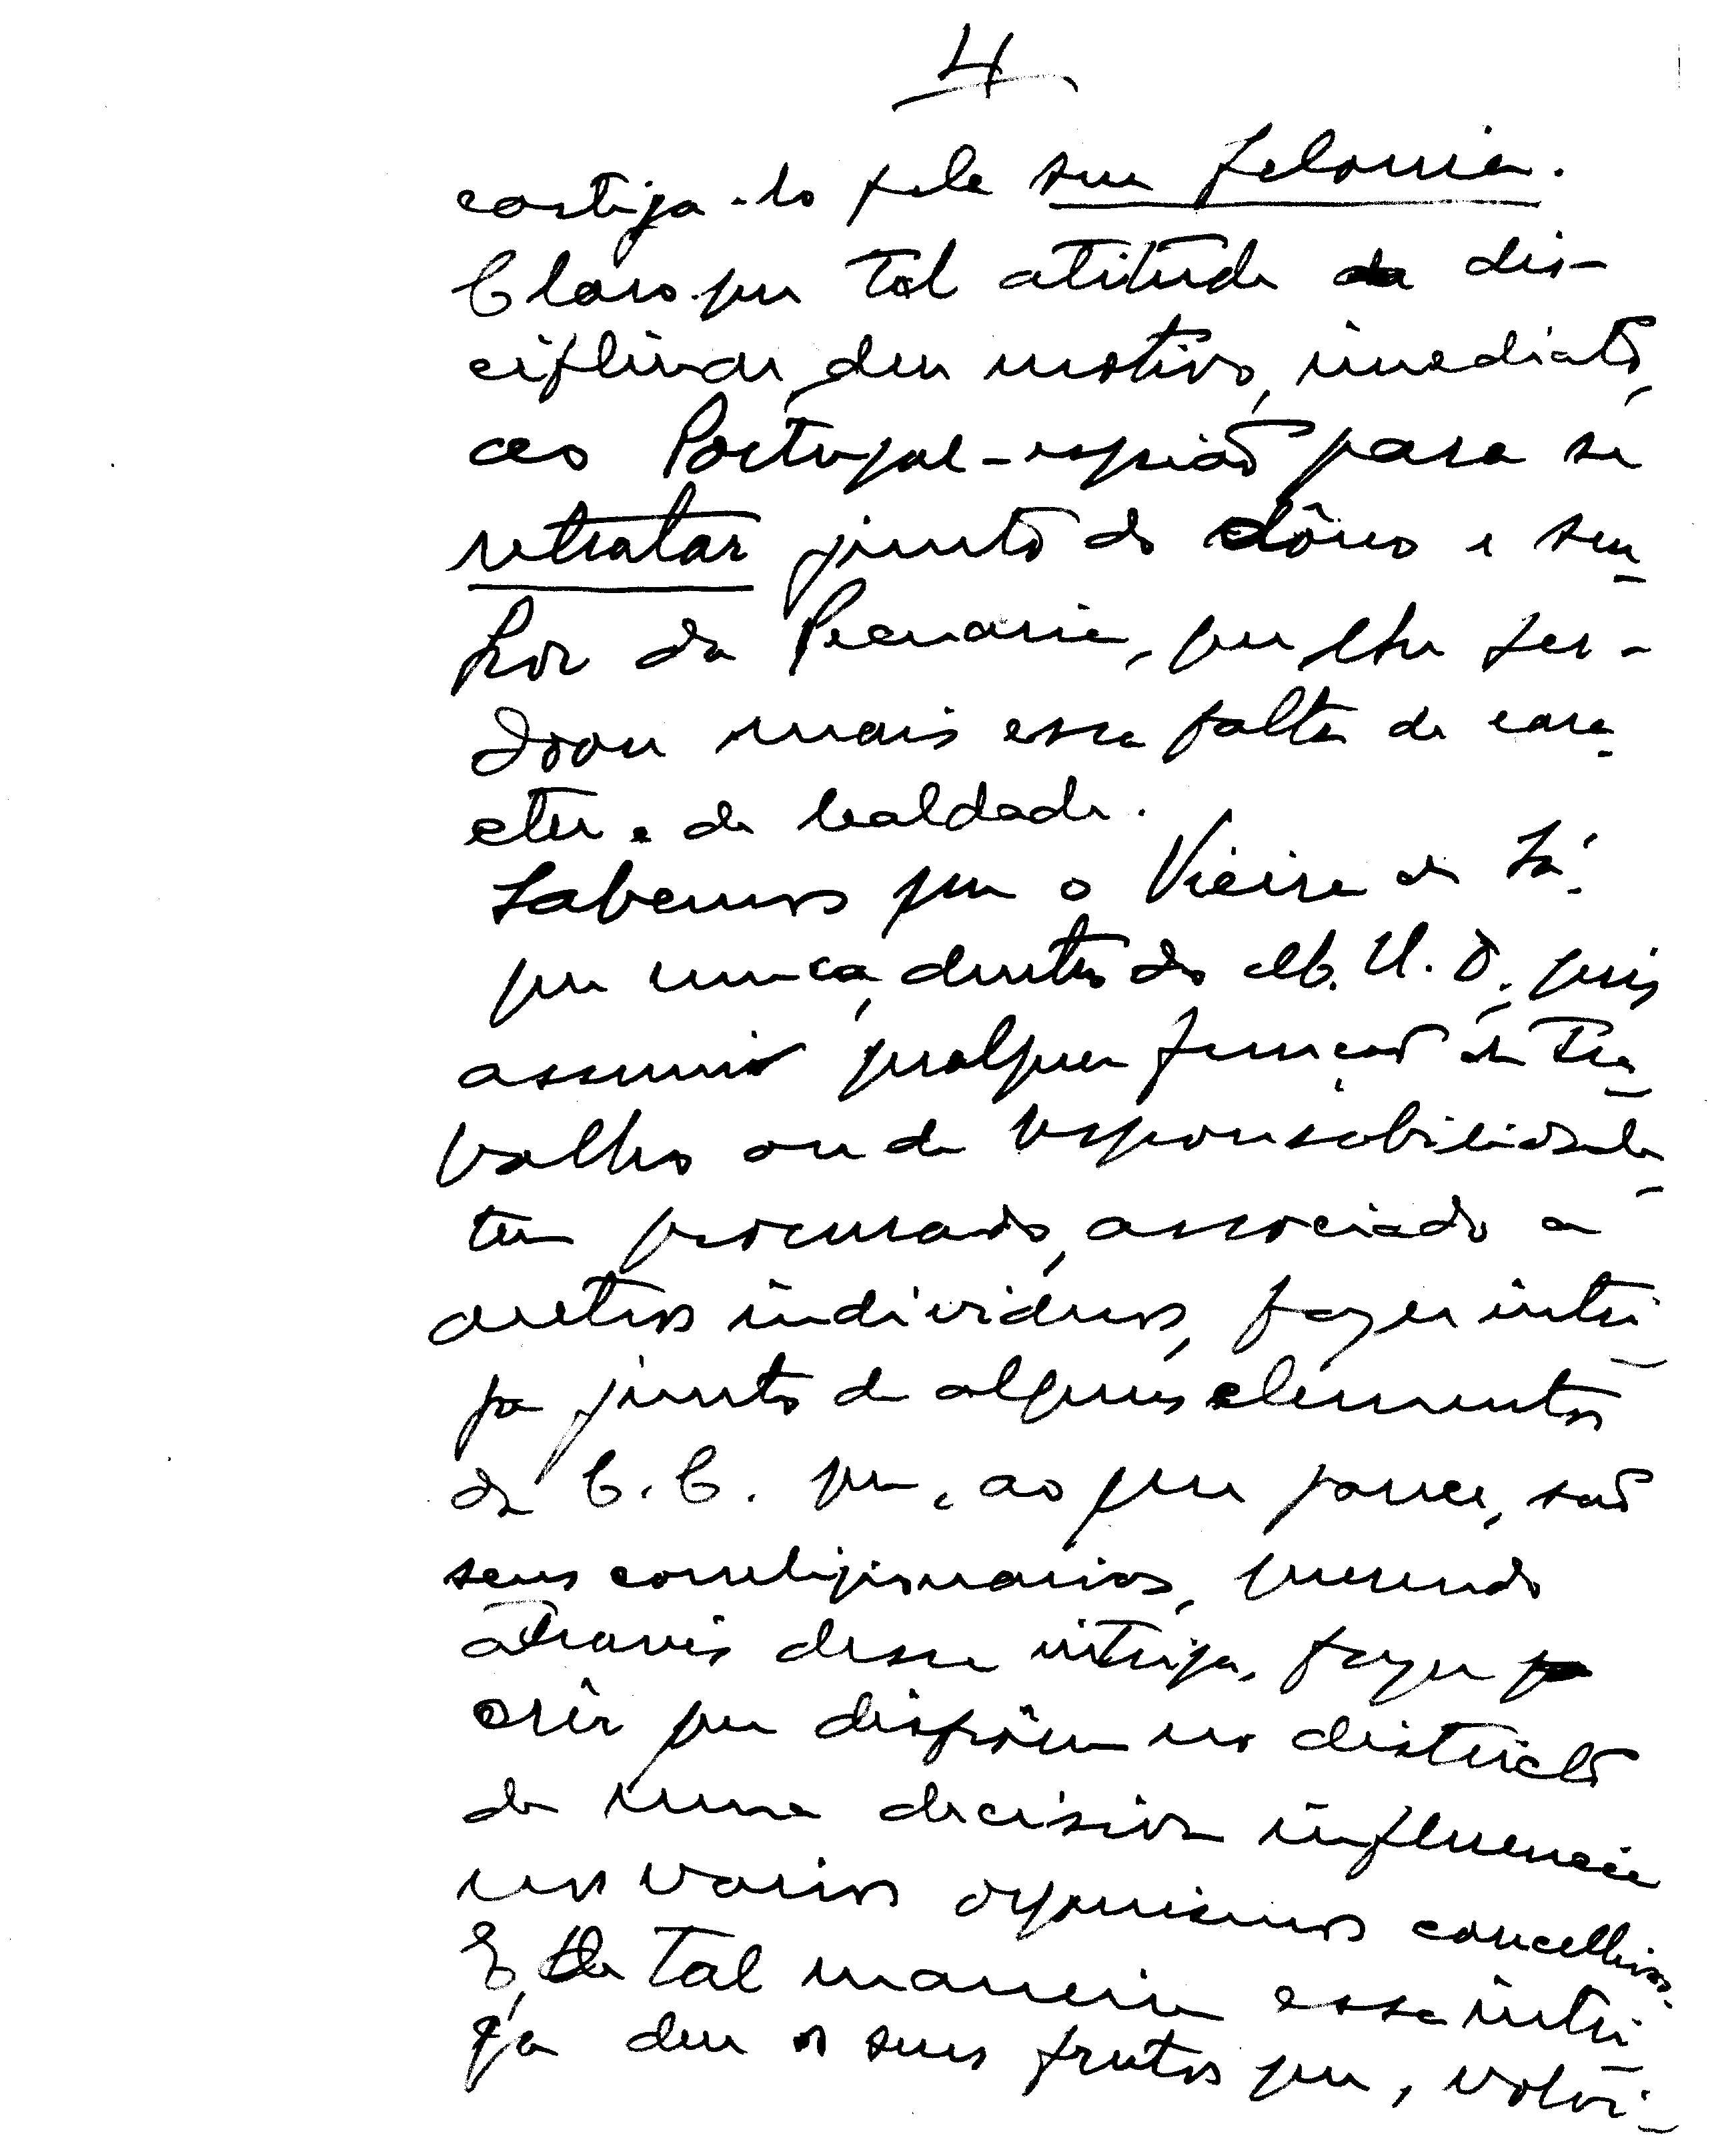 4
castiga-lo pela sua felonia.
Claro que tal atitude dis-
ciplinar, deu motivo, imediato,
ao Portugal-espião para se
retratar junto do dôno e se-
nhor da Pecuaria, que lhe per-
doou mais essa falta de cara-
cter e de lealdade.
Sabemos que o Vieira de Sá,
que nunca, dentro do M.U.D., quis
assumir qualquer função de tra-
balho ou de responsabilidade,
tem procurado, associado a
outros individuos, fazer intri-
ga junto de alguns elementos
da C.C. que, ao que parece, são
seus correligionarios, querendo
através dessa intriga, fazer
crêr que dispõem no distrito
de uma decisiva influencia
nos varios organismos concelhios.
E, de tal maneira essa intri-
ga deu os seus frutos que, volvi-